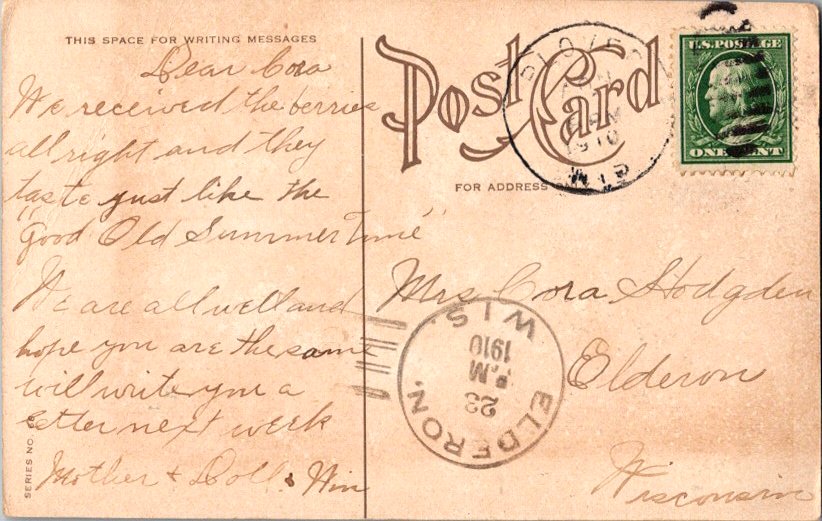 THIS SPACE FOR WRITING MESSAGES
Dear Cora
We received the berries
all right and they
taste just like the
"Good Old Summer Time"
We are all well and
hope you are the same
will write you a
letter next week
Mother + Doll & Win
SERIES NO.
Post Card
FOR ADDRESS
PLOVER
PM
1910
WIS
U.S. POSTAGE
ONE CENT
Mrs Cora Hodgden
Elderon
Wisconsin
ELDERON,
23
P.M
1910
WIS.